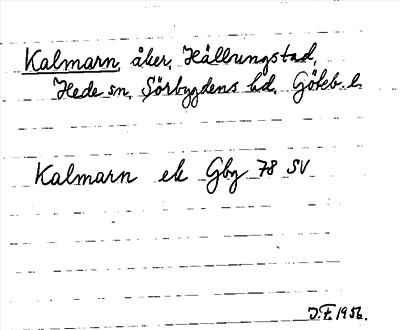 Kalmarn, åker, Hällungstad,
Hede sn, Sörbygdens hd, Göteb. l.
Kalmarn ek Gbg 78 SV
J.F. 1956.